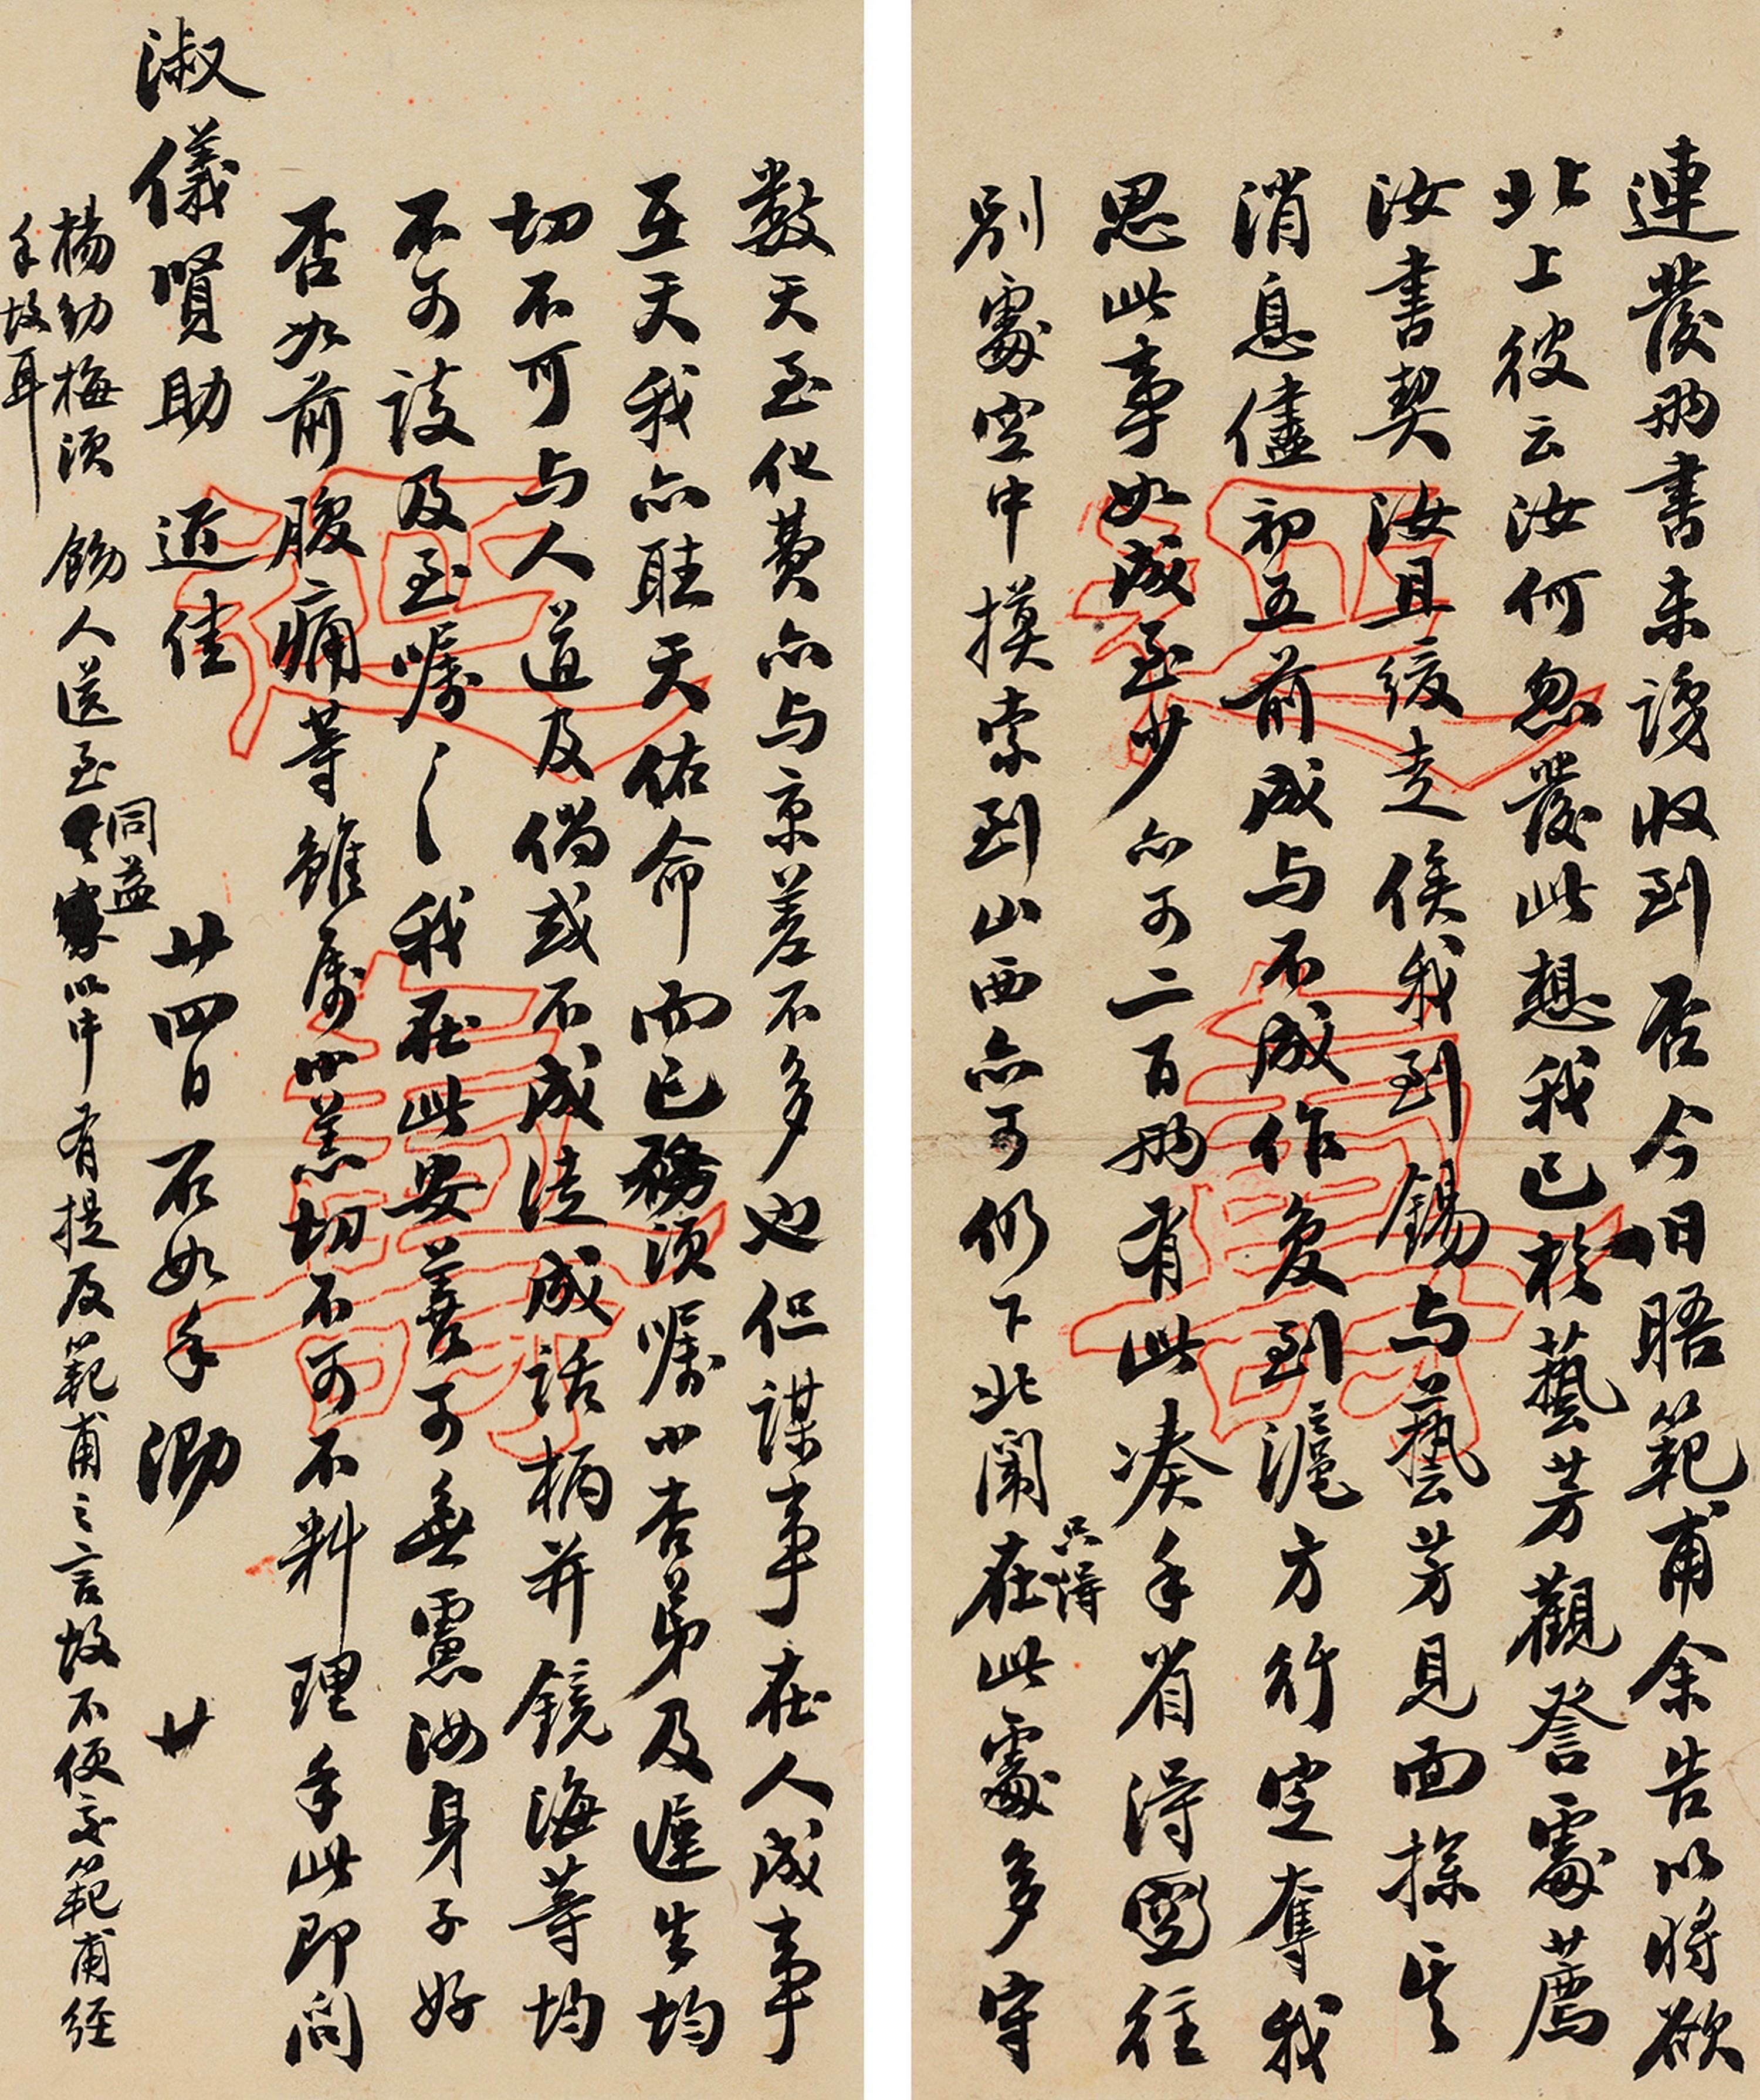 連發兩書未識收到否今日晤範甫余告以將欲
北上彼云汝何忽發此想我已於藝芳觀詧處薦
汝書契汝且緩走俟我到錫与藝芳見面探其
消息儘初五前成与不成作复到滬方行定奪我
思此事如成至少亦可二百兩有此湊手省得圖往
別處空中摸索到山西亦可仍下北闈只得在此處多守
數天至化費亦与京差不多也但謀事在人成事
在天我亦聽天佑命而已務須嘱小杏弟及遲生均
切不可与人道及倘或不成徒成話柄并鏡海等均
不可談及至嘱〻我在此安善可無慮汝身子好
否如前腹痛等雖屬小恙切不可不料理手此即問
淑儀賢助 近佳 廿四日 不如手泐 廿
楊幼梅須 飭人送至同益以中有提及範甫之言故不便交範甫經
手故耳